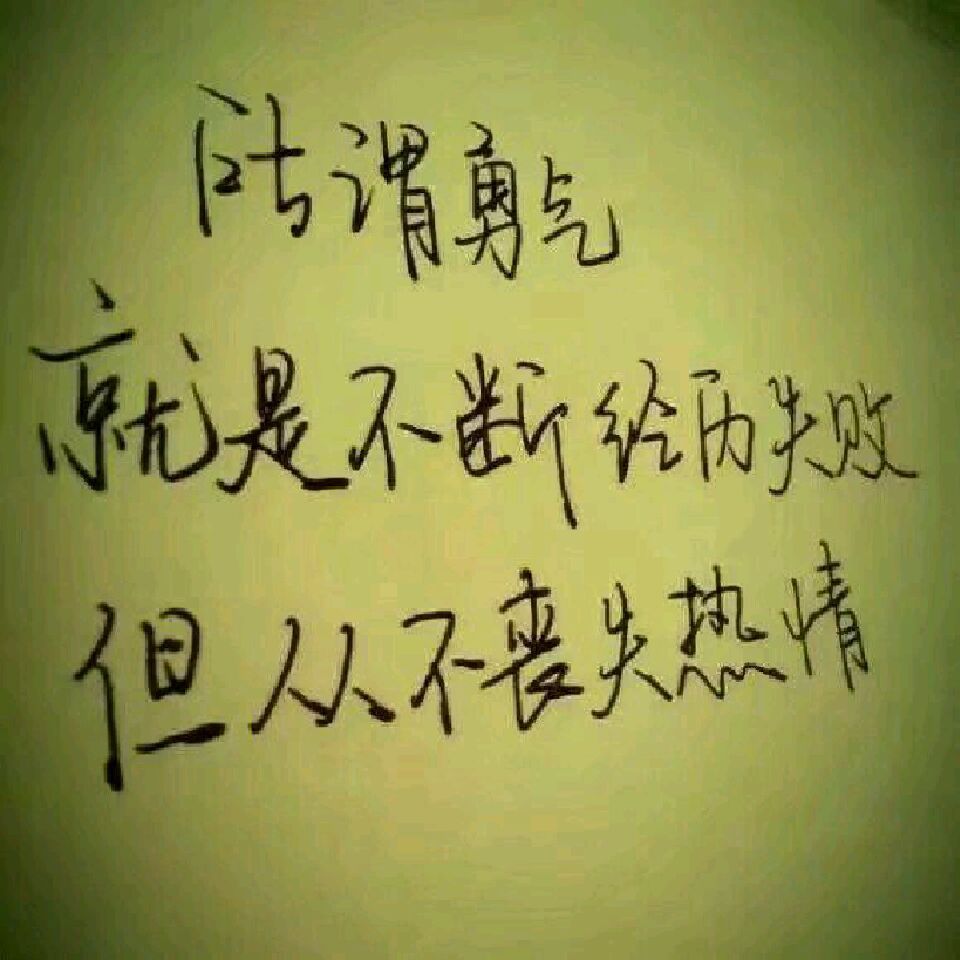 所谓勇气
就是不断经历失败
但从不丧失热情